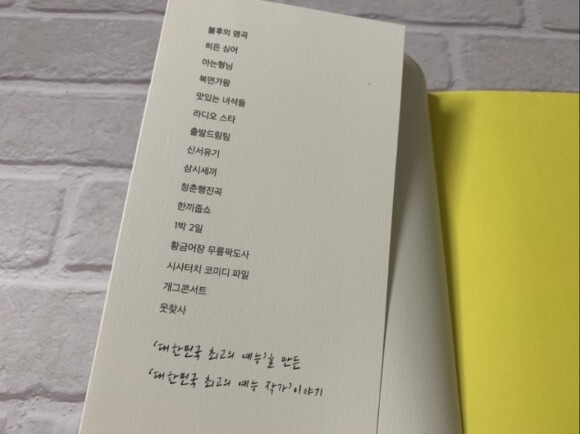 불후의 명곡
히든 싱어
아는형님
복면가왕
맛있는 녀석들
라디오 스타
출발드림팀
신서유기
삼시세끼
청춘행진곡
한끼줍쇼
1박 2일
황금어장 무릎팍도사
시사터치 코미디 파일
개그콘서트
웃찾사
‘대한민국 최고의 예능’을 만든
‘대한민국 최고의 예능 작가’ 이야기